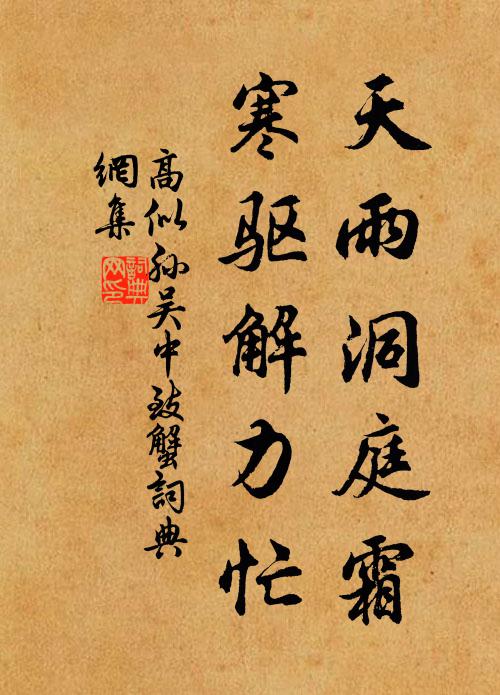 天雨洞庭霜
寒驱解力忙
高似孙吴中致蟹詞典
網集
詞典网印